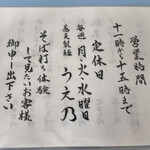 営業時間
十一時から十五時まで
定休日
毎週 月・火・水曜日
蕎麦製麺 うえ乃
そば打ち体験
して見たいお客様
御申し出下さい